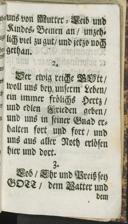 uns von Mutter-Leib und
Kindes-Beinen an / unzeh-
lich viel zu gut / und jetzo noch
gethan.
2.
Der ewig reiche GOtt /
woll uns bey unserm Leben /
ein immer frölichs Hertz /
und edlen Frieden geben /
und uns in seiner Gnad er-
halten fort und fort / und
uns aus aller Noth erlösen
hier und dort.
3.
Lob / Ehr und Preiß sey
GOTT / dem Vatter und
dem